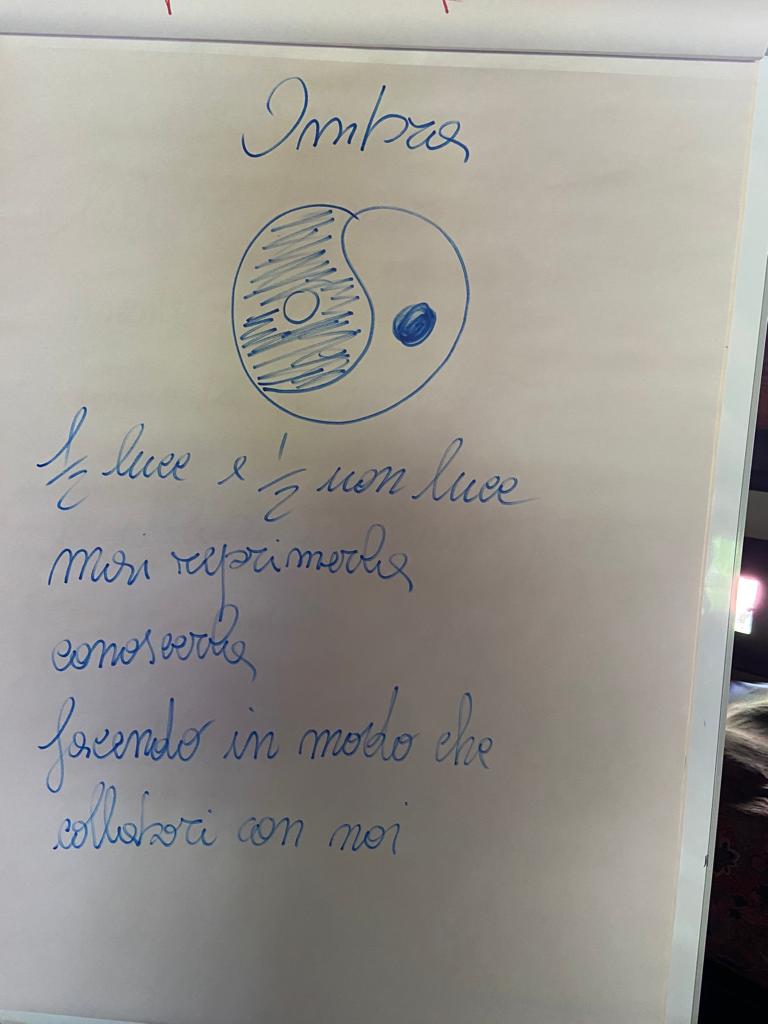 Ombra
1/2 luce e 1/2 non luce
mai reprimerla
conoscerla
facendo in modo che
collabori con noi